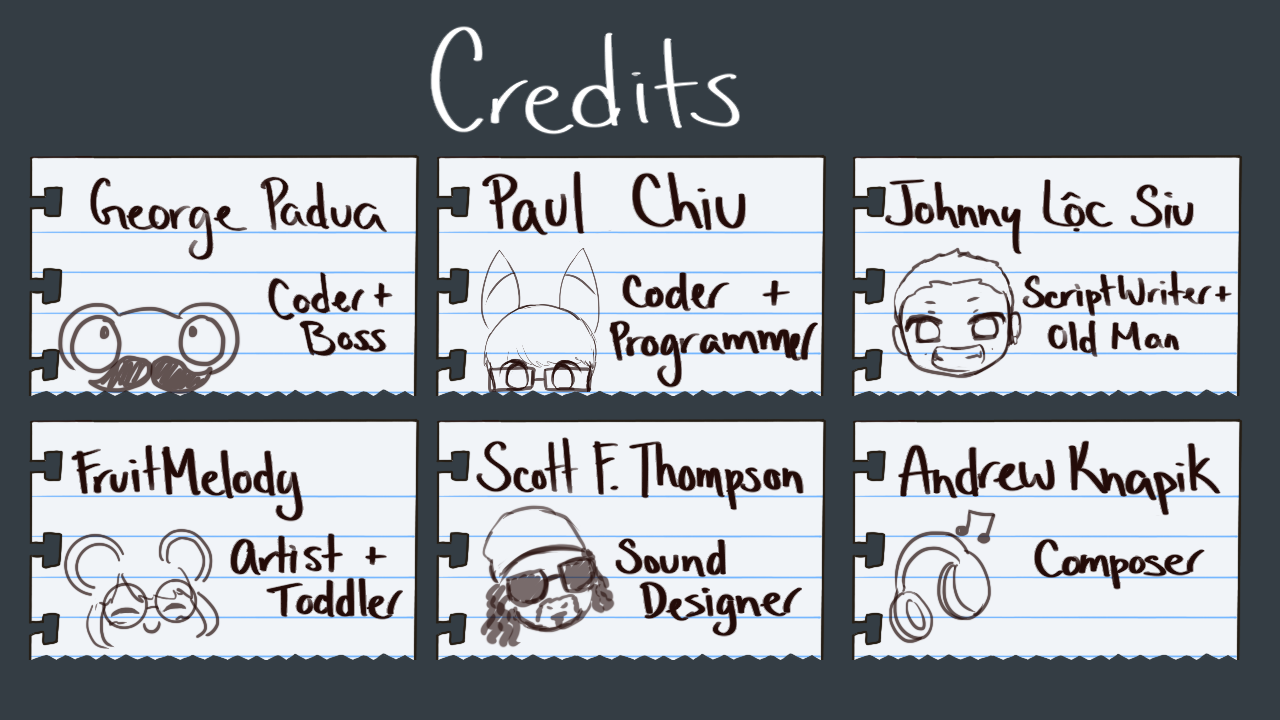 Credits
George Padua
Coder +
Boss
Paul Chiu
Coder +
Programmer
Johnny Lộc Siu
ScriptWriter +
Old Man
FruitMelody
Artist +
Toddler
Scott F. Thompson
Sound
Designer
Andrew Knapik
Composer